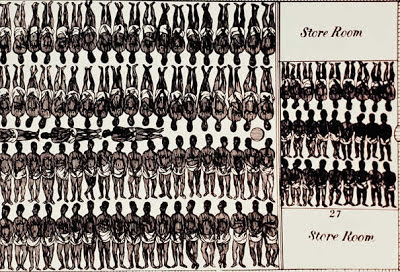 Store Room
27
Store Room